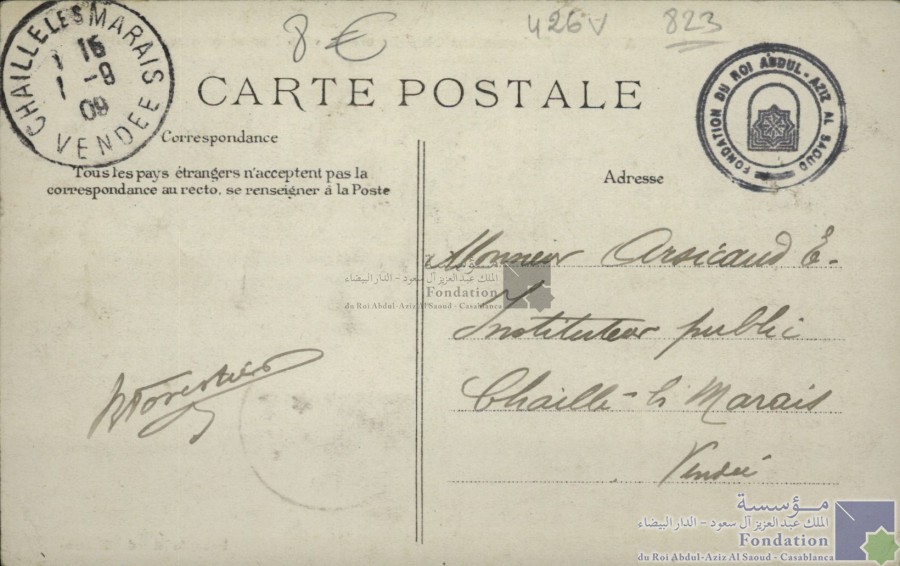 8 €
426v
823
CHAILLE LES MARAIS
15
1 -9
09
VENDEE
FONDATION DU ROI ABDUL-AZIZ AL SAOUD
CARTE POSTALE
Correspondance
Tous les pays étrangers n'acceptent pas la
correspondance au recto. se renseigner à la Poste
Adresse
Monsieur Arsicaud E.
Instituteur public
Chaillé-les Marais
Vendée
مؤسسة
الملك عبد العزيز آل سعود - الدار البيضاء
Fondation
du Roi Abdul-Aziz Al Saoud - Casablanca
Forestier
مؤسسة
الملك عبد العزيز آل سعود - الدار البيضاء
Fondation
du Roi Abdul-Aziz Al Saoud - Casablanca